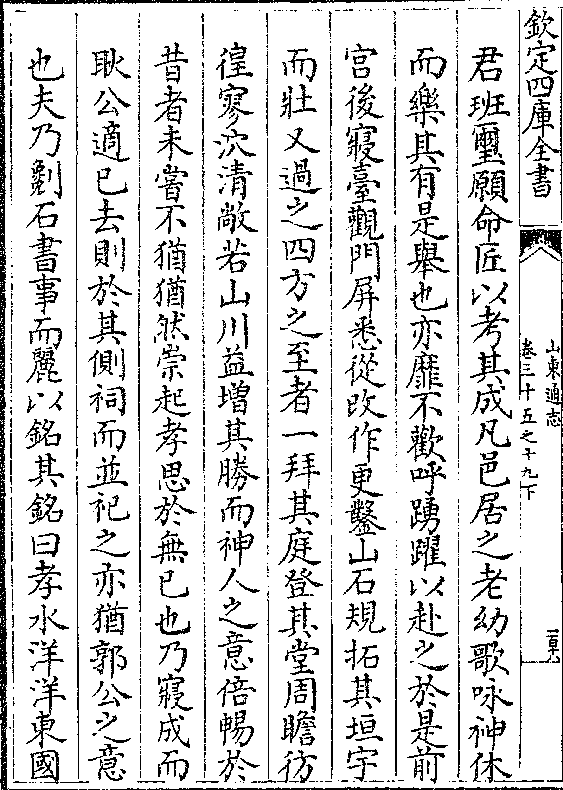 欽定四庫全書
山東通志
卷三十五之十九下
君班璽願命匠以考其成凡邑居之老幼歌咏神休
而樂其有是舉也亦靡不歡呼踴躍以赴之於是前
宫後寢臺觀門屏悉從改作更鑿山石規拓其垣宇
而壯又過之四方之至者一拜其庭登其堂周瞻彷
徨寥泬清敞若山川益增其勝而神人之意倍暢於
昔者未嘗不猶猶然崇起孝思於無已也乃寢成而
耿公適已去則於其側祠而並祀之亦猶郭公之意
也夫乃劖石書事而麗以銘其銘曰孝水洋洋東國